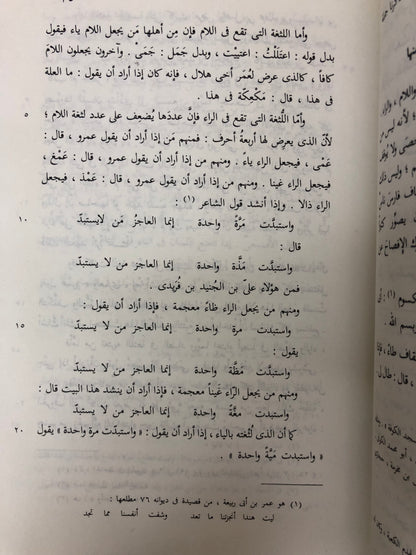 وأما اللثغة التى تقع فى اللام فإن مِن أهلها مَن يجعل اللام ياء فيقول
بدل قوله : اعتَلَلْت : اعتَيَيْت ، وبدل جَمَل : جَمَىْ . وآخرون يجعلون اللامَ
كافاً ، كالذى عرض لعُمَر أخى هلال ، فإنه كان إذا أراد أن يقول : ما العلة
فى هذا ، قال : مَكعِكّة فى هذا .
وأمّا اللُّثغة التى تقع فى الراء فإنّ عددَها يُضعِف على عدد لثغة اللام ؛ ٥
لأنّ الذى يعرِض لها أربعةُ أحرف : فمنهم مَن إذا أراد أن يقول عمرو ، قال :
عَمْى ، فيجعل الراء ياء . ومنهم من إذا أراد أن يقول عمرو ، قال : عَمْغ ،
فيجعل الراء غينا . ومنهم من إذا أراد أن يقول عمرو ، قال : عَمْذ ، فيجعل
الراء ذالا . وإذا أنشد قول الشاعر (١) :
واستبدَّت مَرَّةً واحدة إنما العاجزُ مَن لايَستبِدّ ١٠
قال :
واستبدَّت مَذَّة واحدة إنما العاجز من لا يستبدّ
فمن هؤلاء علىّ بن الجُنَيد بن فُريدى .
ومنهم من يجعل الراء ظاءً معجمة ، فإذا أراد أن يقول :
واستبدت مرة واحدة إنما العاجز من لا يستبدّ ١٥
يقول :
واستبدَّت مَظَّة واحدة إنما العاجز من لا يستبدّ
ومنهم من يجعل الرّاء غَيناً معجمة ، فإذا أراد أن ينشد هذا البيت قال :
واستبدّت مغَّةً واحدة إنما العاجز من لا يستبدّ
كما أن الذى لُثغته بالياء ، إذا أراد أن يقول : « واستبدّت مرة واحدة » يقول ٢٠
« واستبدّت مَيَّةً واحدة » .
(١) هو عمر بن أبى ربيعة ، من قصيدة فى ديوانه ٧٦ مطلعها :
ليت هندا أنجزتنا ما تعد وشفت أنفسنا مما تجد